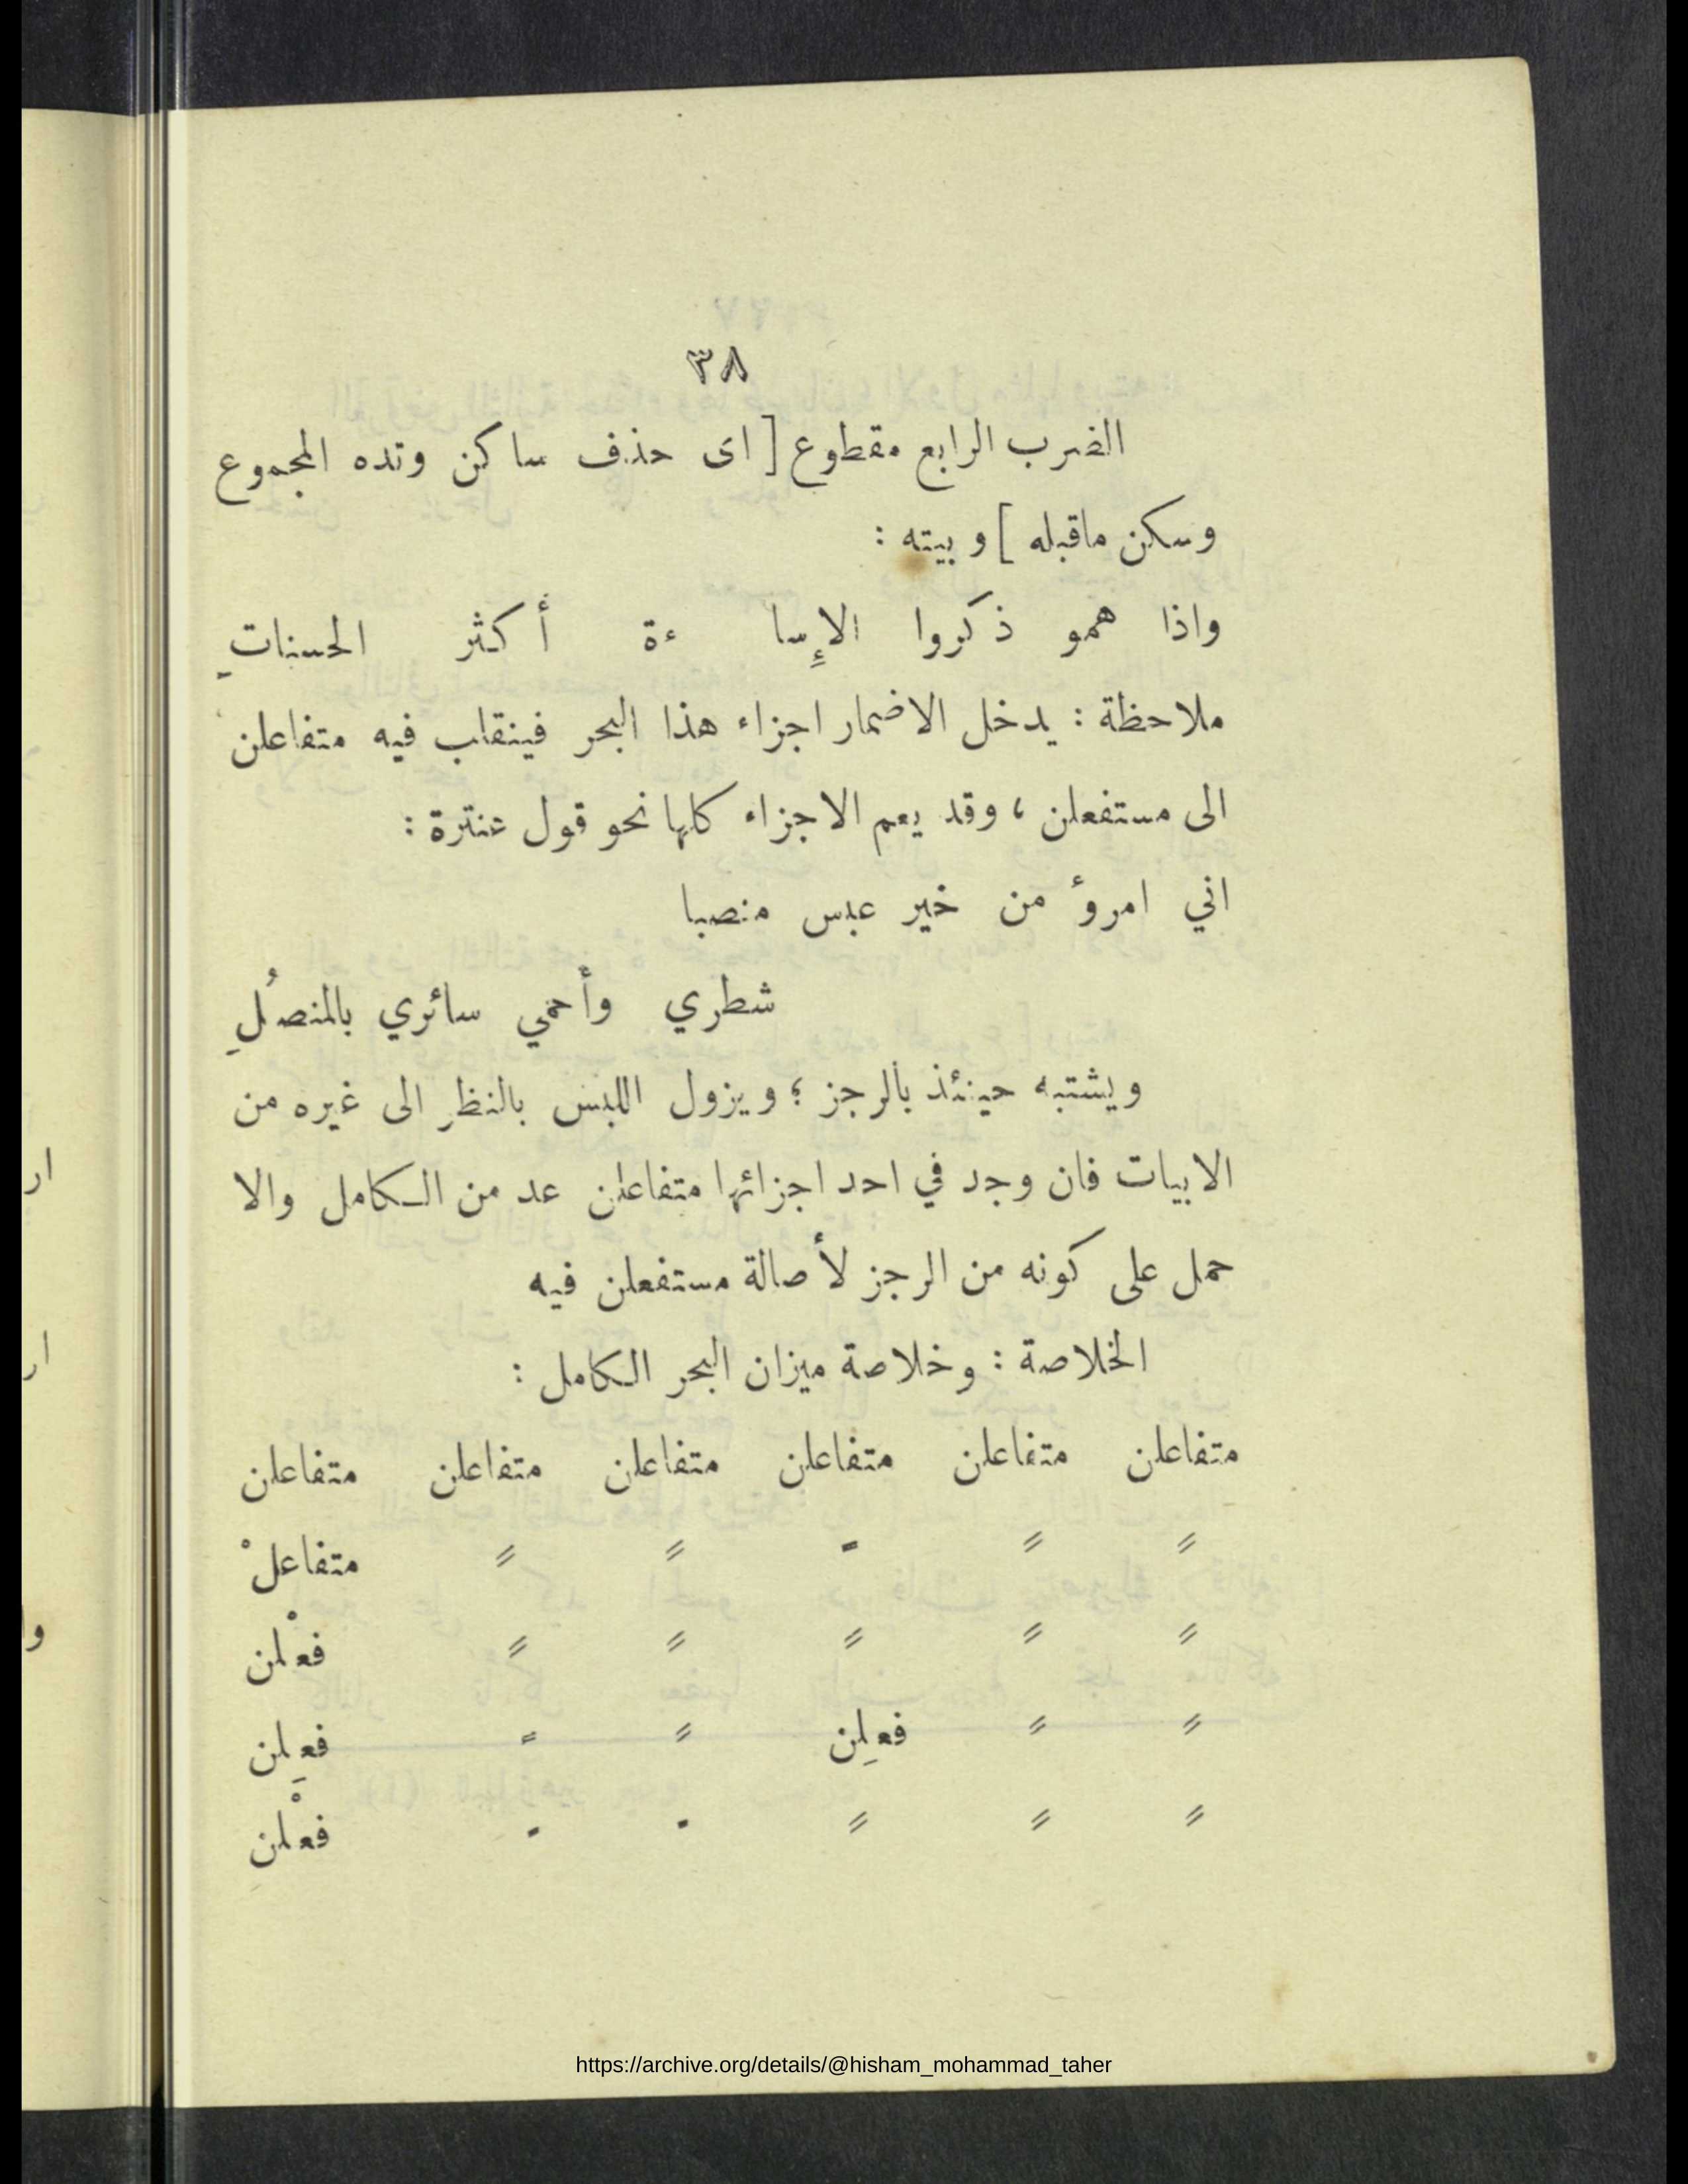 ٣٨
الضرب الرابع مقطوع [ اى حذف ساكن وتده المجموع
وسكن ماقبله ] و بيته :
واذا همو ذكروا الإِسا ءة أكثر الحسناتِ
ملاحظة : يدخل الاضمار اجزاء هذا البحر فينقلب فيه متفاعلن
الى مستفعلن ، وقد يعم الاجزاء كلها نحو قول عنترة :
اني امروٴ من خير عبس منصبا
شطري وأحمي سائري بالمنصُلِ
ويشتبه حينئذ بالرجز ؛ ويزول اللبس بالنظر الى غيره من
الابيات فان وجد في احد اجزائها متفاعلن عد من الكامل والا
حمل على كونه من الرجز لأصالة مستفعلن فيه
الخلاصة : وخلاصة ميزان البحر الكامل :
متفاعلن متفاعلن متفاعلن متفاعلن متفاعلن متفاعلن
〃 〃 〃 〃 〃 متفاعلْ
〃 〃 〃 〃 〃 فعْلن
〃 〃 فعلِن 〃 〃 فعِلن
〃 〃 〃 〃 〃 فعْلن
https://archive.org/details/@hisham_mohammad_taher